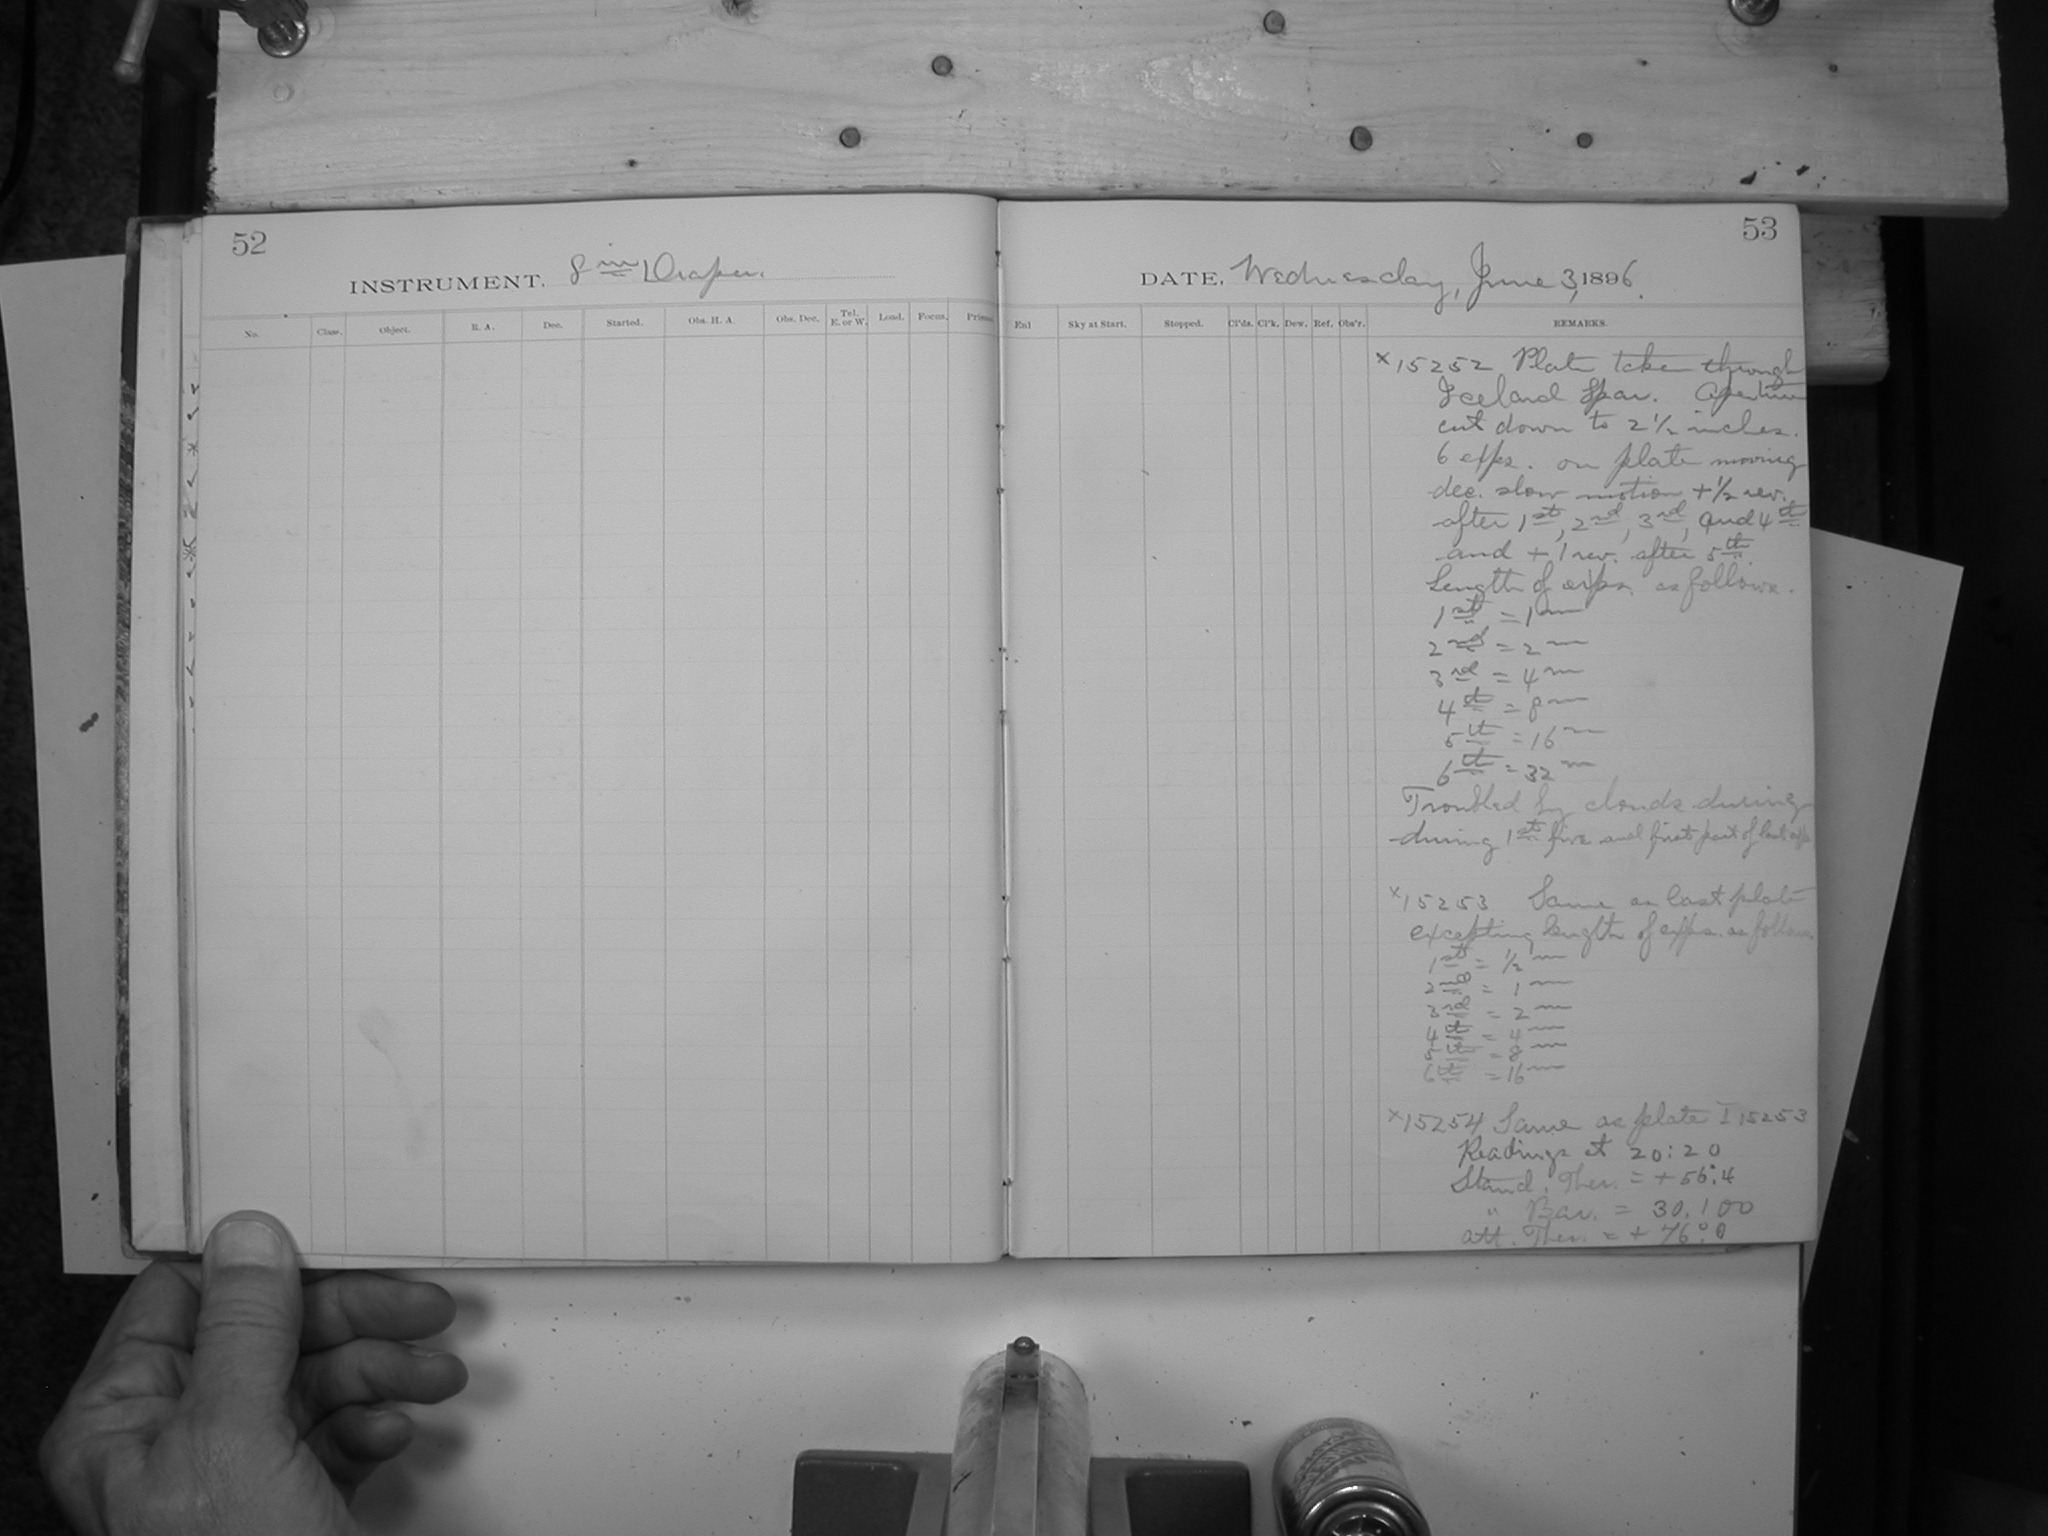 52
INSTRUMENT. 8 in Draper.
No. Class. Object. R. A. Dec. Started. Obs. H. A. Obs. Dec. Tel. E. or W. Load. Focus. Prisms
53
DATE, Wednesday, June 3, 1896.
Sky at Start. Stopped. Cl'ds. Cl'k. Dew. Ref. Obs'r. REMARKS.
x15252 Plate taken through
Iceland Spar. Aperture
cut down to 2 1/2 inches.
6 exps. on plate moving
dec. slow motion + 1/2 rev.
after 1st, 2nd, 3rd, and 4th
and + 1 rev. after 5th
Length of exps. as follows.
1st = 1m
2nd = 2m
3rd = 4m
4th = 8m
5th = 16m
6th = 32m
Troubled by clouds during
during 1st five and first part of last exp
x15253 Same as last plate
excepting length of exps. as follows.
1st = 1/2 m
2nd = 1m
3rd = 2m
4th = 4m
5th = 8m
6th = 16m
x15254 Same as plate I 15253
Readings at 20:20
Stand. Ther. = + 56°.4
" Bar. = 30.100
att. Ther. = + 76°.0